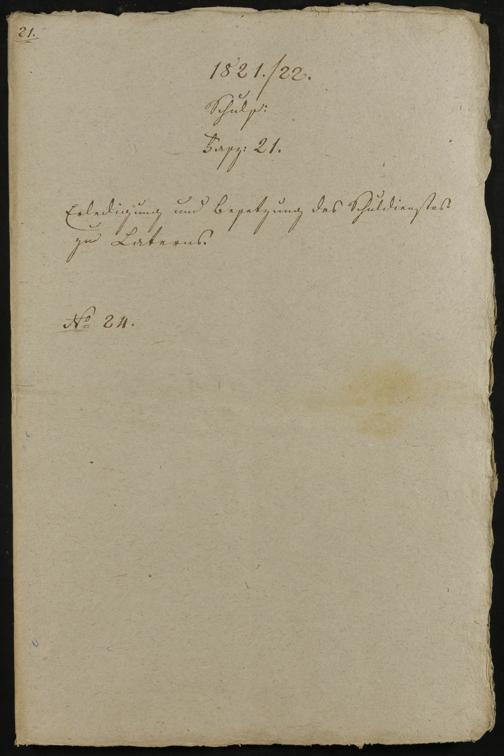 21.
1821./22.
Schulf:
Fasz: 21.
Erledigung und Besetzung des Schuldienstes
zu Laterns.
No 24.